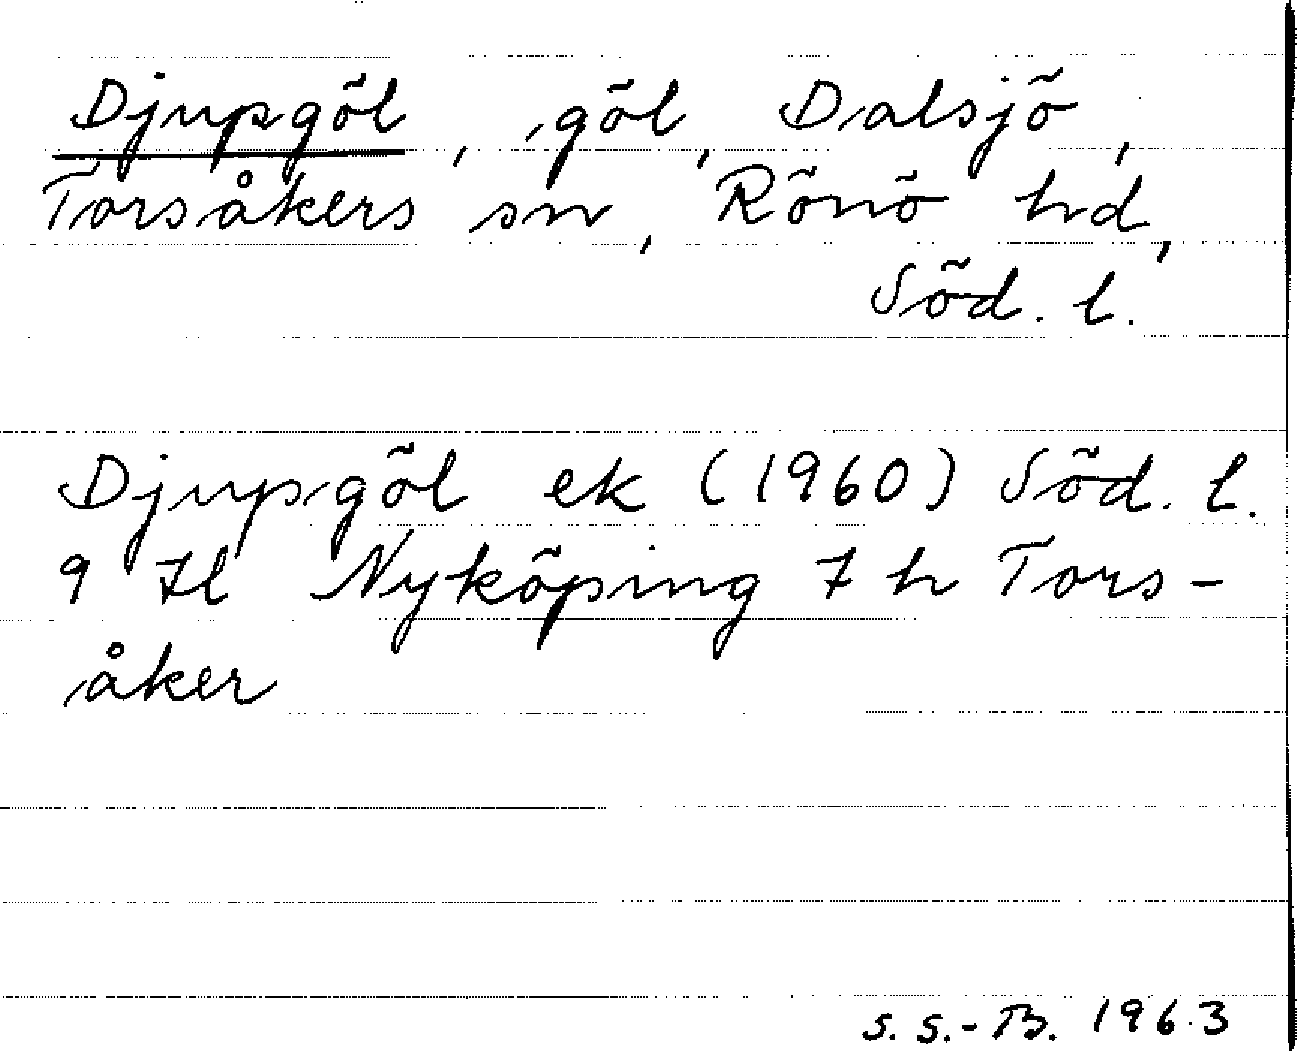 Djupgöl, göl, Dalsjö,
Torsåkers sn, Rönö hd,
Söd. l.
Djupgöl ek (1960) Söd. l.
9 Il Nyköping 7 h Tors-
åker
S. S.-B. 1963